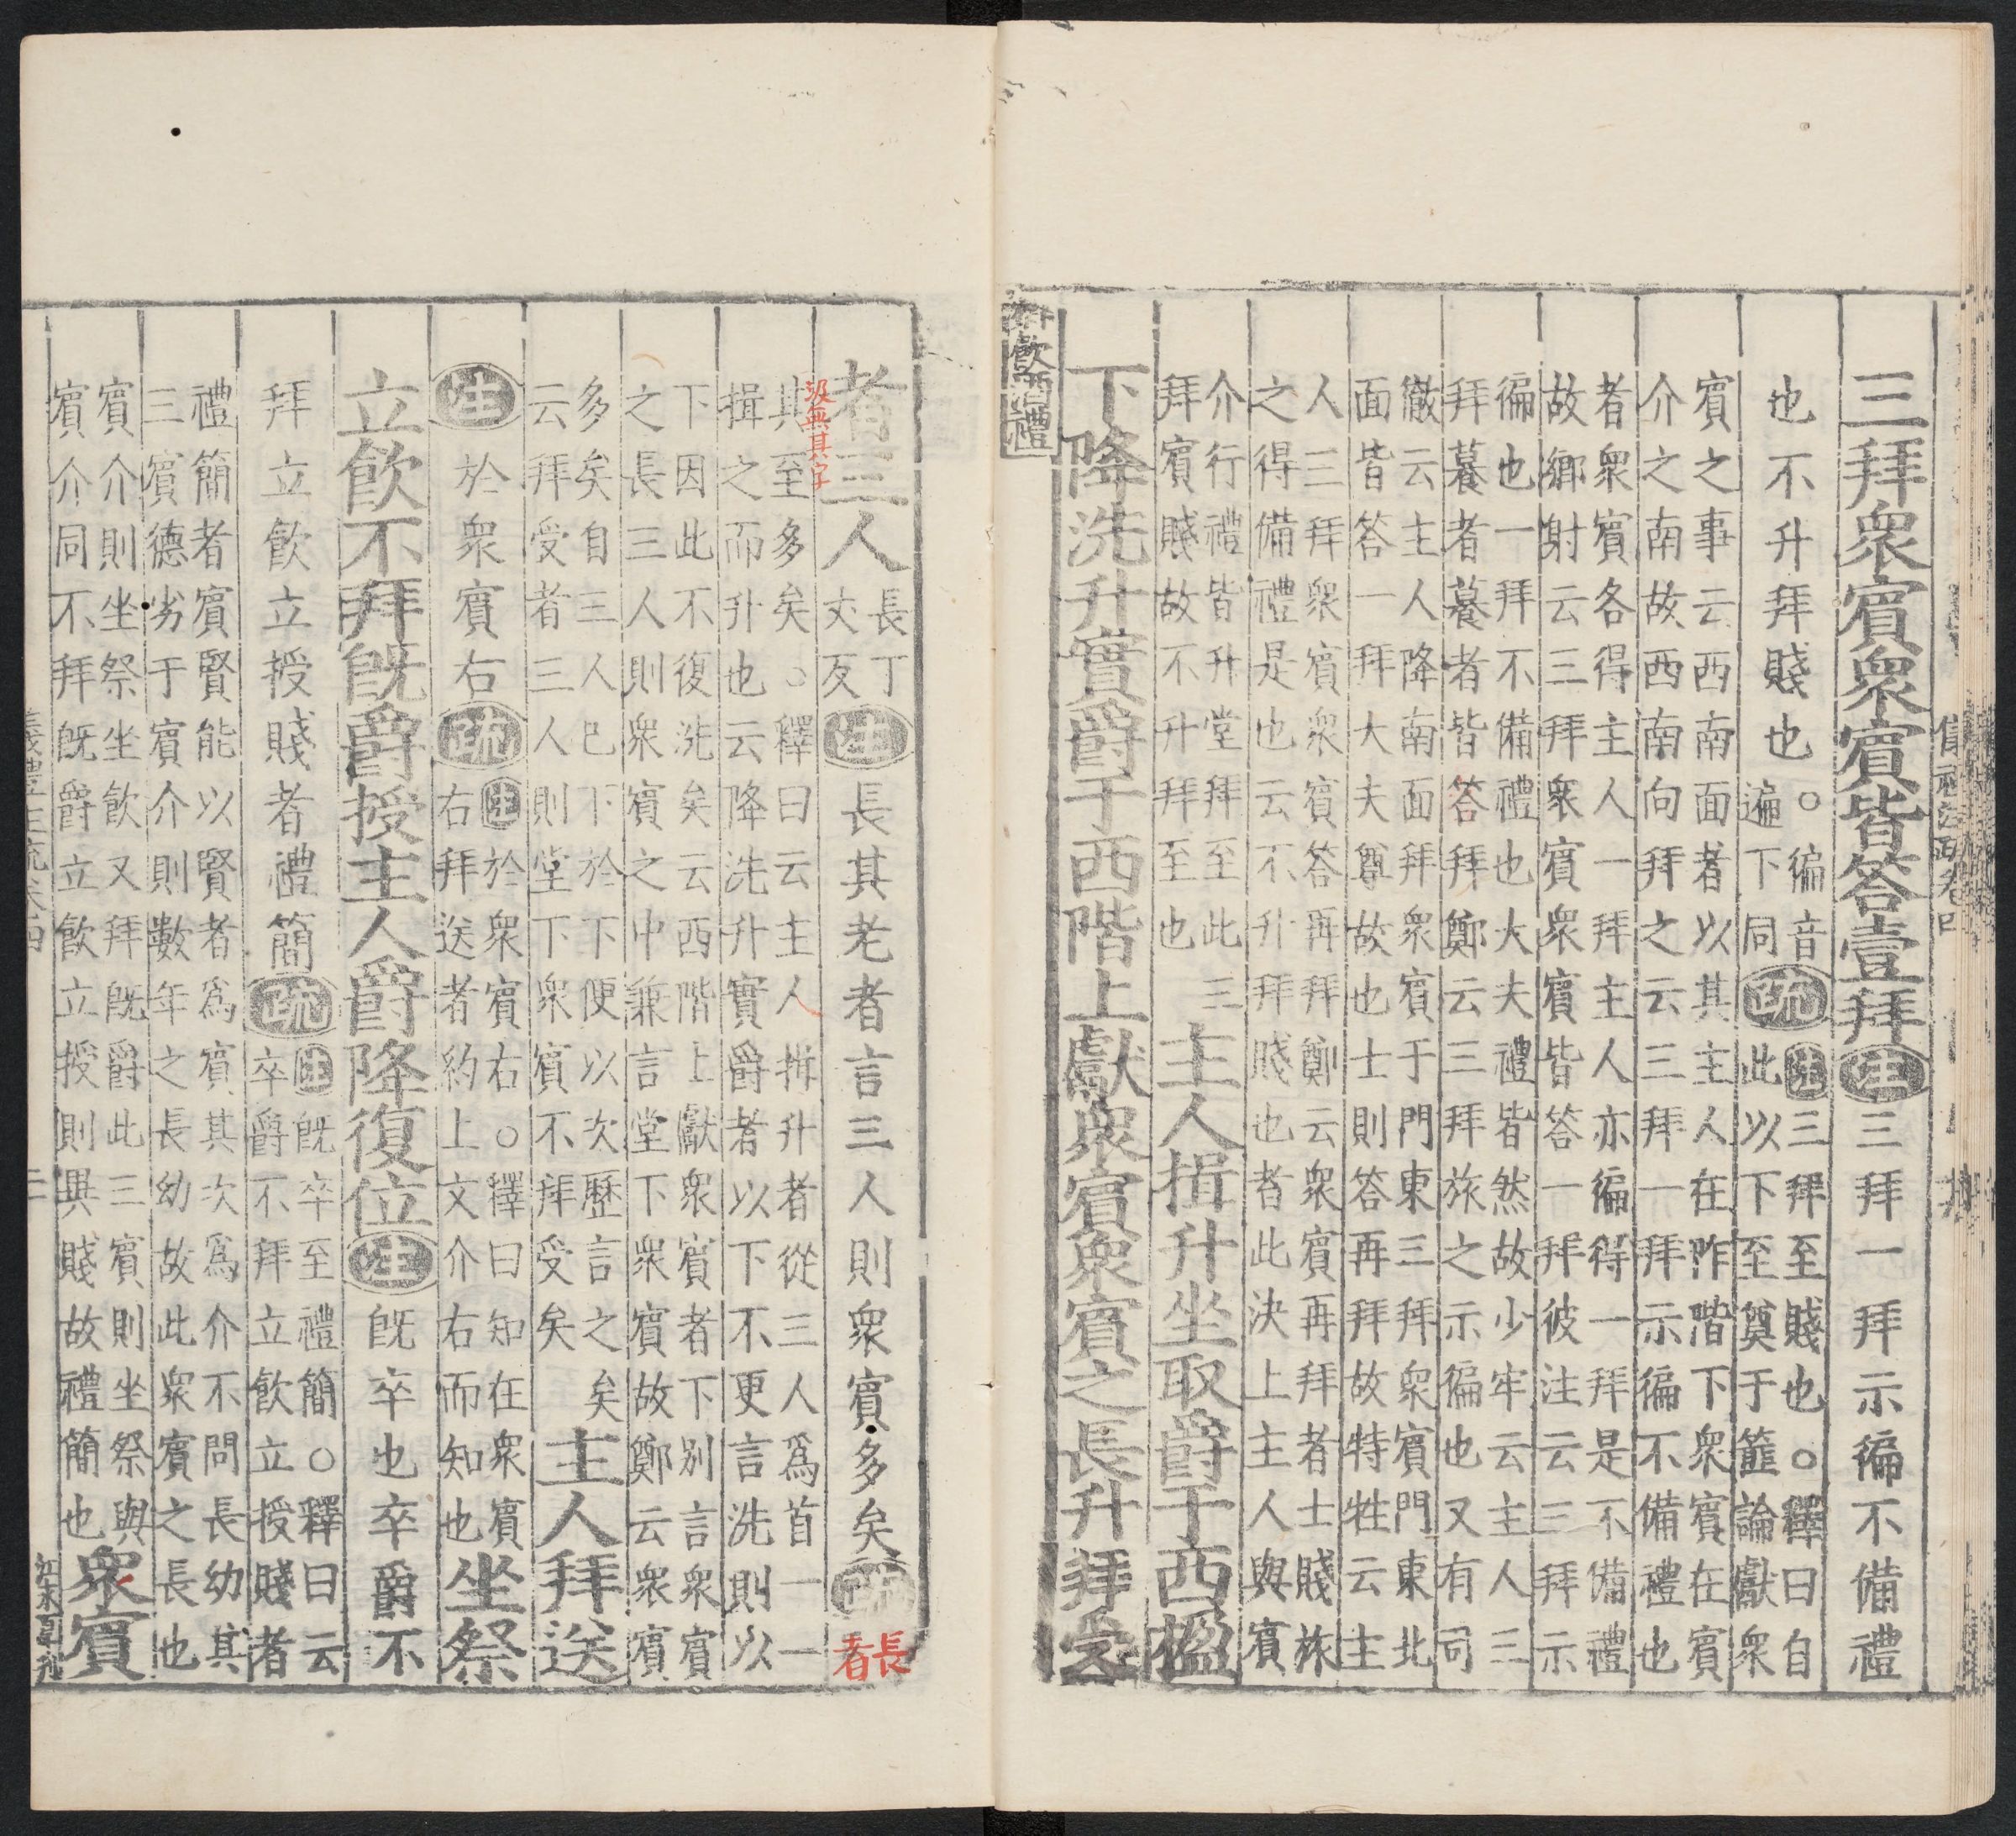 三拜衆賓衆賓皆答壹拜注三拜一拜示徧不備禮
也不升拜賤也○徧音
遍下同疏注三拜至賤也○釋曰自
此以下至奠于篚論獻衆
賓之事云西南面者以其主人在阼階下衆賓在賓
介之南故西南向拜之云三拜一拜示徧不備禮也
者衆賓各得主人一拜主人亦徧得一拜是不備禮
故鄉射云三拜衆賓衆賓皆答一拜彼注云三拜示
徧也一拜不備禮也大夫禮皆然故少牢云主人三
拜養者養者皆答拜鄭云三拜旅之示徧也又有司
徹云主人降南面拜衆賓于門東三拜衆賓門東北
面皆答一拜大夫尊故也士則答再拜故特牲云主
人三拜衆賓衆賓答再拜鄭云衆賓再拜者士賤旅
之得備禮是也云不升拜賤也者此決上主人與賓
介行禮皆升堂拜至此三
拜賓賤故不升拜拜至也
主人揖升坐取爵于西楹
下降洗升實爵于西階上獻衆賓衆賓之長升拜受
鄉飲酒禮
者三人長丁
丈反注長其老者言三人則衆賓多矣疏長
者
汲無其字
其至多矣○釋曰云主人揖升者從三人爲首一一
揖之而升也云降洗升實爵者以下不更言洗則以
下因此不復洗矣云西階上獻衆賓者下別言衆賓
之長三人則衆賓之中兼言堂下衆賓故鄭云衆賓
多矣自三人已下於下便以次歷言之矣
云拜受者三人則堂下衆賓不拜受矣
主人拜送
注於衆賓右疏注於衆賓右○釋曰知在衆賓
右拜送者約上文介右而知也
坐祭
立飲不拜既爵授主人爵降復位注既卒也卒爵不
拜立飲立授賤者禮簡疏注既卒至禮簡○釋曰云
卒爵不拜立飲立授賤者
禮簡者賓賢能以賢者爲賓其次爲介不問長幼其
三賓德劣于賓介則數年之長幼故此衆賓之長也
賓介則坐祭坐飲又拜既爵此三賓則坐祭與
賓介同不拜既爵立飲立授則與賤故禮簡也
衆賓
儀禮注疏卷四
二